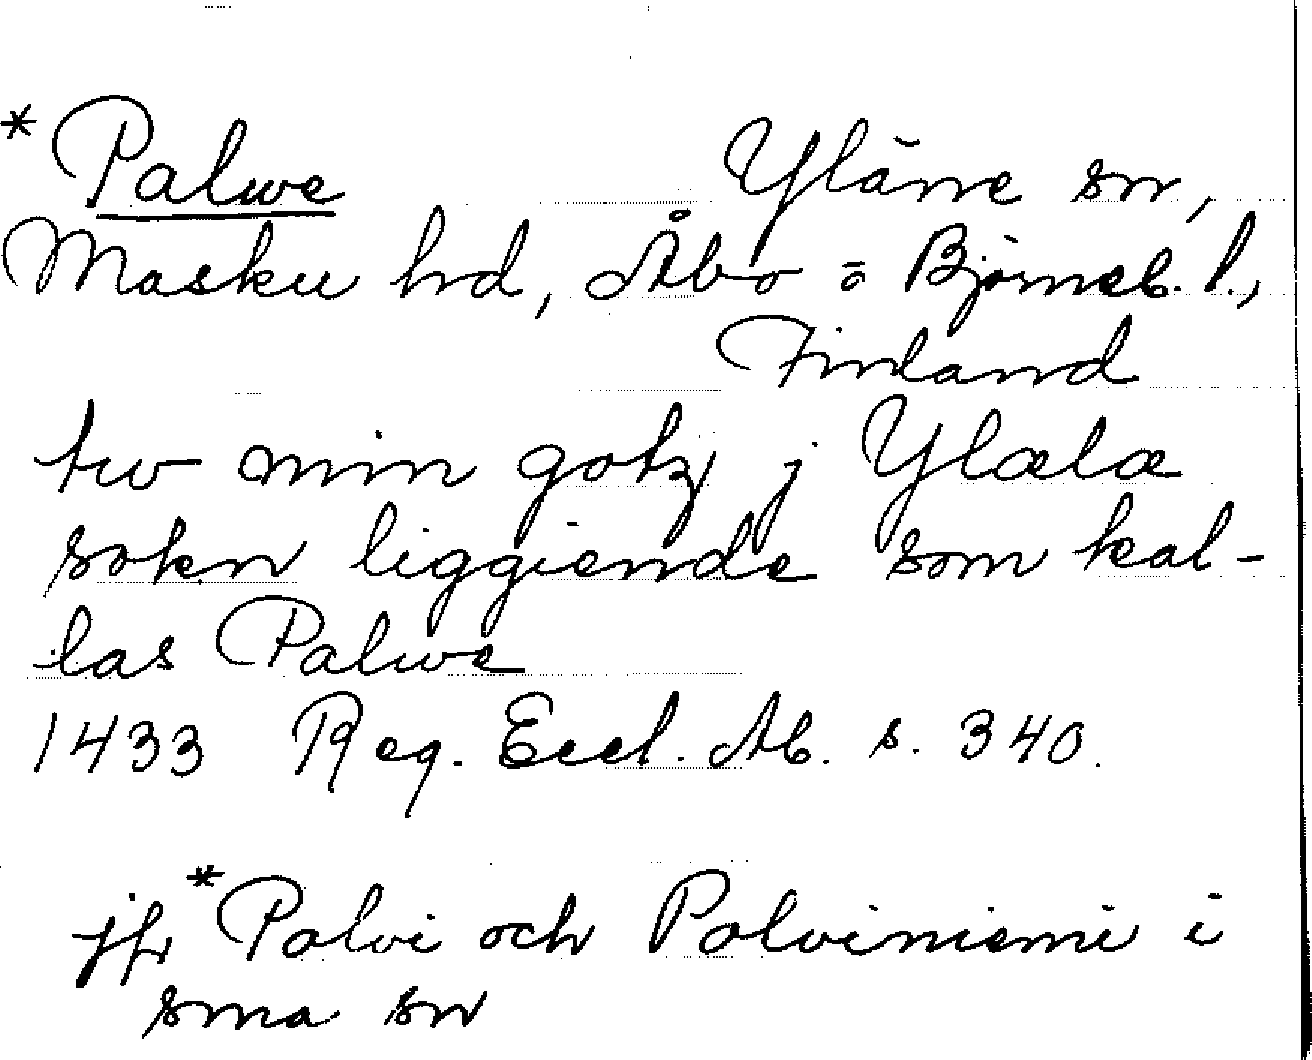 *Palwe Yläne sn,
Masku hd, Åbo o Björneb. l.,
Finland
tw min gotz j Ylælæ
sokn liggiende som kal-
las Palwe
1433 Reg. Eccl. Ab. s. 340.
jfr *Palvi och Palviniemi i
sma sn